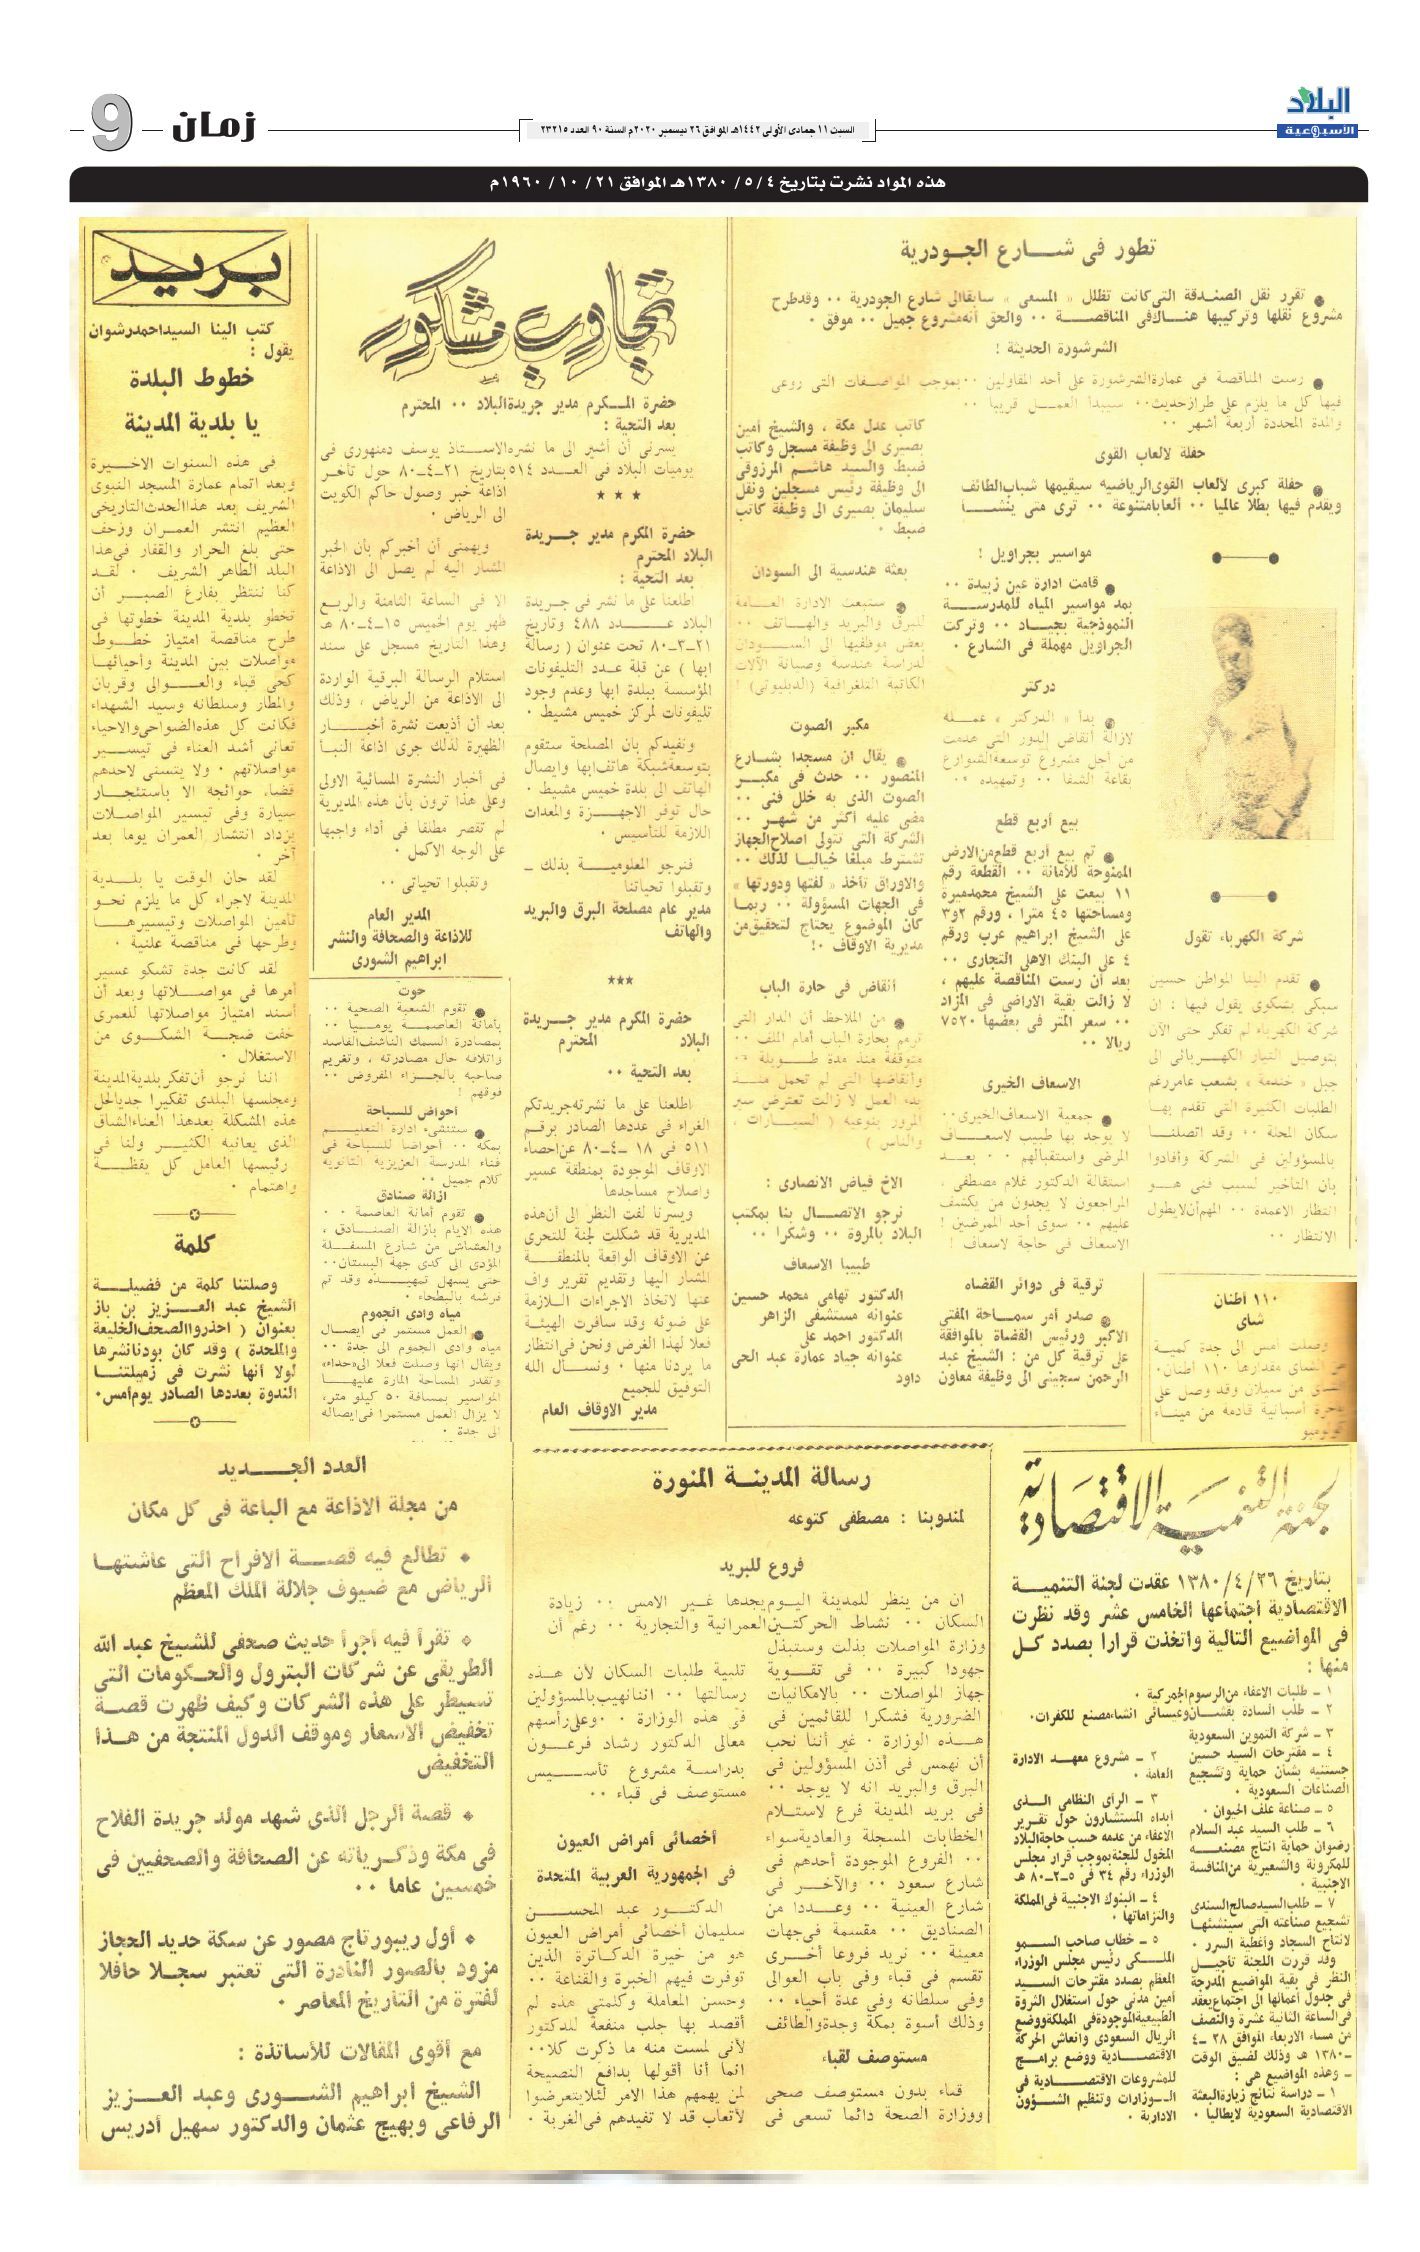 البلاد
الأسبوعية
السبت ١١ جمادى الأولى ١٤٤٢هـ الموافق ٢٦ ديسمبر ٢٠٢٠م السنة ٩٠ العدد ٢٣٢١٥
زمان
9
هذه المواد نشرت بتاريخ ٤ /٥ /١٣٨٠هـ الموافق ٢١ / ١٠ / ١٩٦٠م
تطور فى شارع الجودرية
تقرر نقل الصندقة التى كانت تظلل « المسعى » سابقا الى شارع الجودرية ٠٠ وقد طرح
مشروع نقلها وتركيبها هناك فى المناقصة ٠٠ والحق أنه مشروع جميل ٠٠ موفق ٠
الشرشورة الحديثة !
رست المناقصة فى عمارة الشرشورة على أحد المقاولين ٠٠ بموجب المواصفات التى روعى
فيها كل ما يلزم على طراز حديث ٠٠ سيبدأ العمل قريبا ٠٠
والمدة المحددة أربعة أشهر ٠٠
حفلة لالعاب القوى
حفلة كبرى لالعاب القوى الرياضيه سيقيمها شباب الطائف
ويقدم فيها بطلا عالميا ٠٠ ألعابا متنوعة ٠٠ ترى متى ينشأ
شركة الكهرباء تقول
تقدم الينا المواطن حسين
سبكى بشكوى يقول فيها : ان
شركة الكهرباء لم تفكر حتى الآن
بتوصيل التيار الكهربائى الى
جبل « خندمة » بشعب عامر رغم
الطلبات الكثيرة التى تقدم بها
سكان المحلة ٠٠ وقد اتصلنا
بالمسؤولين فى الشركة وأفادوا
بان التأخير لسبب فنى هو
انتظار الاعمدة ٠٠ المهم أن لا يطول
الانتظار ٠٠
١١٠ أطنان
شاى
وصلت أمس الى جدة كمية
من الشاى مقدارها ١١٠ أطنان ٠
من سيلان وقد وصل على
أسبانية قادمة من ميناء
مواسير بجراويل !
قامت ادارة عين زبيدة ٠٠
بمد مواسير المياه للمدرسة
النموذجية بجياد ٠٠ وتركت
الجراويل مهملة فى الشارع ٠
دركتر
بدأ « الدركتر » عمله
لازالة أنقاض الدور التى هدمت
من أجل مشروع توسعة الشوارع
بقاعة الشفا ٠٠ وتمهيده ٠٠
بيع أربع قطع
تم بيع أربع قطع من الارض
الممنوحة للأمانة ٠٠ القطعة رقم
١١ بيعت على الشيخ محمد ميرة
ومساحتها ٤٥ مترا ، ورقم ٢و٣
على الشيخ ابراهيم عرب ورقم
٤ على البنك الاهلى التجارى ٠٠
بعد أن رست المناقصة عليهم ،
لا زالت بقية الاراضى فى المزاد
٠٠ سعر المتر فى بعضها ٧٥٢٠
ريالا ٠٠
الاسعاف الخيرى
جمعية الاسعاف الخيرى ٠٠
لا يوجد بها طبيب لاسعاف
المرضى واستقبالهم ٠٠ بعد
استقالة الدكتور غلام مصطفى ،
المراجعون لا يجدون من يكشف
عليهم ٠٠ سوى أحد الممرضين !
الاسعاف فى حاجة لاسعاف !
ترقية فى دوائر القضاه
صدر أمر سماحة المفتى
الاكبر ورئيس القضاة بالموافقة
على ترقية كل من : الشيخ عبد
الرحمن سجينى الى وظيفة معاون
كاتب عدل مكة ، والشيخ أمين
بصيرى الى وظيفة مسجل وكاتب
ضبط والسيد هاشم المرزوقى
الى وظيفة رئيس مسجلين ونقل
سليمان بصيرى الى وظيفة كاتب
ضبط ٠
بعثة هندسية الى السودان
ستبعث الادارة العامة
للبرق والبريد والهاتف ٠٠
بعض موظفيها الى السودان
لدراسة هندسة وصيانة الآلات
الكاتبة التلغرافية (الديلبوتى) !
مكبر الصوت
يقال ان مسجدا بشارع
المنصور ٠٠ حدث فى مكبر
الصوت الذى به خلل فنى ٠٠
مضى عليه أكثر من شهر ٠٠
الشركة التى تتولى اصلاح الجهاز
تشترط مبلغا خياليا لذلك ٠٠
والاوراق تأخذ « لفتها ودورتها »
فى الجهات المسؤولة ٠٠ ربما
كان الموضوع يحتاج لتحقيق من
مديرية الاوقاف ٠!
أنقاض فى حارة الباب
من الملاحظ أن الدار التى
ترمم بحارة الباب أمام الملف ٠٠
متوقفة منذ مدة طويلة ٠٠
وأنقاضها التى لم تحمل منذ
بدء العمل لا زالت تعترض سير
المرور بنوعيه ( السيارات ،
والناس )
الاخ فياض الانصارى :
نرجو الاتصال بنا بمكتب
البلاد بالمروة ٠٠ وشكرا ٠٠
طبيبا الاسعاف
الدكتور تهامى محمد حسين
عنوانه مستشفى الزاهر
الدكتور احمد على
عنوانه جياد عمارة عبد الحى
داود
تجاوب مشكور
حضرة المكرم مدير جريدة البلاد ٠٠ المحترم
بعد التحية :
يسرنى أن أشير الى ما نشره الاستاذ يوسف دمنهورى فى
يوميات البلاد فى العدد ٥١٤ بتاريخ ٢١-٤-٨٠ حول تأخر
اذاعة خبر وصول حاكم الكويت
الى الرياض ٠
ويهمنى أن أخبركم بان الخبر
المشار اليه لم يصل الى الاذاعة
الا فى الساعة الثامنة والربع
ظهر يوم الخميس ١٥-٤-٨٠ هـ
وهذا التاريخ مسجل على سند
استلام الرسالة البرقية الواردة
الى الاذاعة من الرياض ، وذلك
بعد أن أذيعت نشرة أخبار
الظهيرة لذلك جرى اذاعة النبأ
فى أخبار النشرة المسائية الاولى
وعلى هذا ترون بأن هذه المديرية
لم تقصر مطلقا فى أداء واجبها
على الوجه الاكمل ٠
وتقبلوا تحياتى ٠٠
المدير العام
للاذاعة والصحافة والنشر
ابراهيم الشورى
★ ★ ★
حضرة المكرم مدير جريدة
البلاد المحترم
بعد التحية :
اطلعنا على ما نشر فى جريدة
البلاد عدد ٤٨٨ وتاريخ
٢١-٣-٨٠ تحت عنوان ( رسالة
ابها ) عن قلة عدد التليفونات
المؤسسة ببلدة ابها وعدم وجود
تليفونات لمركز خميس مشيط ٠
ونفيدكم بان المصلحة ستقوم
بتوسعة شبكة هاتف ابها وايصال
الهاتف الى بلدة خميس مشيط ٠
حال توفر الاجهزة والمعدات
اللازمة للتأسيس ٠
فنرجو المعلومية بذلك ـ
وتقبلوا تحياتنا
مدير عام مصلحة البرق والبريد
والهاتف
★★★
حضرة المكرم مدير جريدة
البلاد المحترم
بعد التحية ٠٠
اطلعنا على ما نشرته جريدتكم
الغراء فى عددها الصادر برقم
٥١١ فى ١٨ -٤-٨٠ عن احصاء
الاوقاف الموجودة بمنطقة عسير
واصلاح مساجدها
ويسرنا لفت النظر الى أن هذه
المديرية قد شكلت لجنة للتحرى
عن الاوقاف الواقعة بالمنطقة
المشار اليها وتقديم تقرير واف
عنها لاتخاذ الاجراءات اللازمة
على ضوئه وقد سافرت الهيئة
فعلا لهذا الغرض ونحن فى انتظار
ما يردنا منها ٠ ونسأل الله
التوفيق للجميع
مدير الاوقاف العام
حوت
تقوم الشعبة الصحية ٠٠
بأمانة العاصمة يوميا ٠٠
بمصادرة السمك الناشف الفاسد
واتلافه حال مصادرته ، وتغريم
صاحبه بالجزاء المفروض ٠٠
فوقهم !
أحواض للسباحة
ستنشىء ادارة التعليم
بمكة ٠٠ أحواضا للسباحة فى
فناء المدرسة العزيزية الثانوية
كلام جميل ٠٠
ازالة صنادق
تقوم أمانة العاصمة ٠٠
هذه الايام بازالة الصنادق ،
والعشاش من شارع المسفلة
المؤدى الى كدى جهة البستان ٠٠
حتى يسهل تمهيده وقد تم
فرشه بالبطحاء ٠
مياه وادى الجموم
العمل مستمر فى ايصال
مياه وادى الجموم الى جدة ٠٠
ويقال انها وصلت فعلا الى «حداء»
وتقدر المساحة المارة عليها
المواسير بمسافة ٥٠ كيلو متر،
لا يزال العمل مستمرا فى ايصاله
الى جدة ٠
بريد
كتب الينا السيد احمد رشوان
يقول :
خطوط البلدة
يا بلدية المدينة
فى هذه السنوات الاخيرة
وبعد اتمام عمارة المسجد النبوى
الشريف بعد هذا الحدث التاريخى
العظيم انتشر العمران وزحف
حتى بلغ الحرار والقفار فى هذا
البلد الطاهر الشريف ٠ لقد
كنا ننتظر بفارغ الصبر أن
تخطو بلدية المدينة خطوتها فى
طرح مناقصة امتياز خطوط
مواصلات بين المدينة وأحيائها
كحى قباء والعوالى وقربان
والمطار وسلطانه وسيد الشهداء
فكانت كل هذه الضواحى والاحياء
تعانى أشد العناء فى تيسير
مواصلاتهم ٠ ولا يتسنى لاحدهم
قضاء حوائجه الا باستئجار
سيارة وفى تيسير المواصلات
يزداد انتشار العمران يوما بعد
آخر ٠
لقد حان الوقت يا بلدية
المدينة لاجراء كل ما يلزم نحو
تأمين المواصلات وتيسيرها
وطرحها فى مناقصة علنية ٠
لقد كانت جدة تشكو عسير
أمرها فى مواصلاتها وبعد أن
أسند امتياز مواصلاتها للعمرى
خفت ضجة الشكوى من
الاستغلال ٠
اننا نرجو أن تفكر بلدية المدينة
ومجلسها البلدى تفكيرا جديا لحل
هذه المشكلة بعد هذا العناء الشاق
الذى يعانيه الكثير ولنا فى
رئيسها العامل كل يقظة
واهتمام ٠
كلمة
وصلتنا كلمة من فضيلة
الشيخ عبد العزيز بن باز
بعنوان ( احذروا الصحف الخليعة
والملحدة ) وقد كان بودنا نشرها
لولا أنها نشرت فى زميلتنا
الندوة بعددها الصادر يوم أمس ٠
لجنة التنمية الاقتصادية
بتاريخ ١٣٨٠/٤/٢٦ عقدت لجنة التنمية
الاقتصادية اجتماعها الخامس عشر وقد نظرت
فى المواضيع التالية واتخذت قرارا بصدد كل
منها :
١ ـ طلبات الاعفاء من الرسوم الجمركية ٠
٢ ـ طلب السادة بقشان وعبسائى انشاء مصنع للكفرات ٠
٣ ـ شركة التموين السعودية
٤ ـ مقترحات السيد حسين
جستنيه بشأن حماية وتشجيع
الصناعات السعودية ٠
٥ ـ صناعة علف الحيوان ٠
٦ ـ طلب السيد عبد السلام
رضوان حماية انتاج مصنعه
للمكرونة والشعيرية من المنافسة
الاجنبية ٠
٧ ـ طلب السيد صالح السندى
تشجيع صناعته التى سينشئها
لانتاج السجاد وأغطية السرر ٠
وقد قررت اللجنة تأجيل
النظر فى بقية المواضيع المدرجة
فى جدول أعمالها الى اجتماع يعقد
فى الساعة الثانية عشرة والنصف
من مساء الاربعاء الموافق ٢٨ -٤
-١٣٨٠ هـ وذلك لضيق الوقت
ـ وهذه المواضيع هى :
١ ـ دراسة نتائج زيارة البعثة
الاقتصادية السعودية لايطاليا ٠
٢ ـ مشروع معهد الادارة
العامة ٠
٣ ـ الرأى النظامى الذى
أبداه المستشارون حول تقرير
الاعفاء من عدمه حسب حاجة البلاد
المخول للجنة بموجب قرار مجلس
الوزراء رقم ٣٤ فى ٥-٢-٨٠ هـ
٤ ـ البنوك الاجنبية فى المملكة
والتزاماتها ٠
٥ ـ خطاب صاحب السمو
الملكى رئيس مجلس الوزراء
المعظم بصدد مقترحات السيد
أمين مدنى حول استغلال الثروة
الطبيعية الموجودة فى المملكة ووضع
الريال السعودى وانعاش الحركة
الاقتصادية ووضع برامج
للمشروعات الاقتصادية فى
الوزارات وتنظيم الشؤون
الادارية ٠
رسالة المدينة المنورة
لمندوبنا : مصطفى كتوعه
فروع للبريد
ان من ينظر للمدينة اليوم يجدها غير الامس :٠ زيادة
السكان ٠٠ نشاط الحركتين العمرانية والتجارية ٠٠ رغم أن
وزارة المواصلات بذلت وستبذل
جهودا كبيرة ٠٠ فى تقوية
جهاز المواصلات ٠٠ بالامكانيات
الضرورية فشكرا للقائمين فى
هذه الوزارة ٠ غير أننا نحب
أن نهمس فى أذن المسؤولين فى
البرق والبريد انه لا يوجد ٠٠
فى بريد المدينة فرع لاستلام
الخطابات المسجلة والعادية سواء
٠٠ الفروع الموجودة أحدهم فى
شارع سعود ٠٠ والآخر فى
شارع العينية ٠٠ وعددا من
الصناديق ٠٠ مقسمة فى جهات
معينة ٠٠ نريد فروعا أخرى
تقسم فى قباء وفى باب العوالى
وفى سلطانه وفى عدة أحياء ٠٠
وذلك أسوة بمكة وجدة والطائف
مستوصف لقباء
قباء بدون مستوصف صحى
ووزارة الصحة دائما تسعى فى
تلبية طلبات السكان لأن هذه
رسالتها ٠٠ اننا نهيب بالمسؤولين
فى هذه الوزارة ٠ ٠ وعلى رأسهم
معالى الدكتور رشاد فرعون
بدراسة مشروع تأسيس
مستوصف فى قباء ٠٠
أخصائى أمراض العيون
فى الجمهورية العربية المتحدة
الدكتور عبد المحسن
سليمان أخصائى أمراض العيون
هو من خيرة الدكاترة الذين
توفرت فيهم الخبرة والقناعة ٠٠
وحسن المعاملة وكلمتى هذه لم
أقصد بها جلب منفعة للدكتور
لأنى لمست منه ما ذكرت كلا ٠٠
انما أنا أقولها بدافع النصيحة
لمن يهمهم هذا الامر لئلا يتعرضوا
لأتعاب قد لا تفيدهم فى الغربة ٠
العدد الجديد
من مجلة الاذاعة مع الباعة فى كل مكان
* تطالع فيه قصة الافراح التى عاشتها
الرياض مع ضيوف جلالة الملك المعظم
* تقرأ فيه أجرأ حديث صحفى للشيخ عبد الله
الطريقى عن شركات البترول والحكومات التى
تسيطر على هذه الشركات وكيف ظهرت قصة
تخفيض الاسعار وموقف الدول المنتجة من هذا
التخفيض
* قصة الرجل الذى شهد مولد جريدة الفلاح
فى مكة وذكرياته عن الصحافة والصحفيين فى
خمسين عاما ٠٠
* أول ريبورتاج مصور عن سكة حديد الحجاز
مزود بالصور النادرة التى تعتبر سجلا حافلا
لفترة من التاريخ المعاصر ٠
مع أقوى المقالات للأساتذة :
الشيخ ابراهيم الشورى وعبد العزيز
الرفاعى وبهيج عثمان والدكتور سهيل أدريس